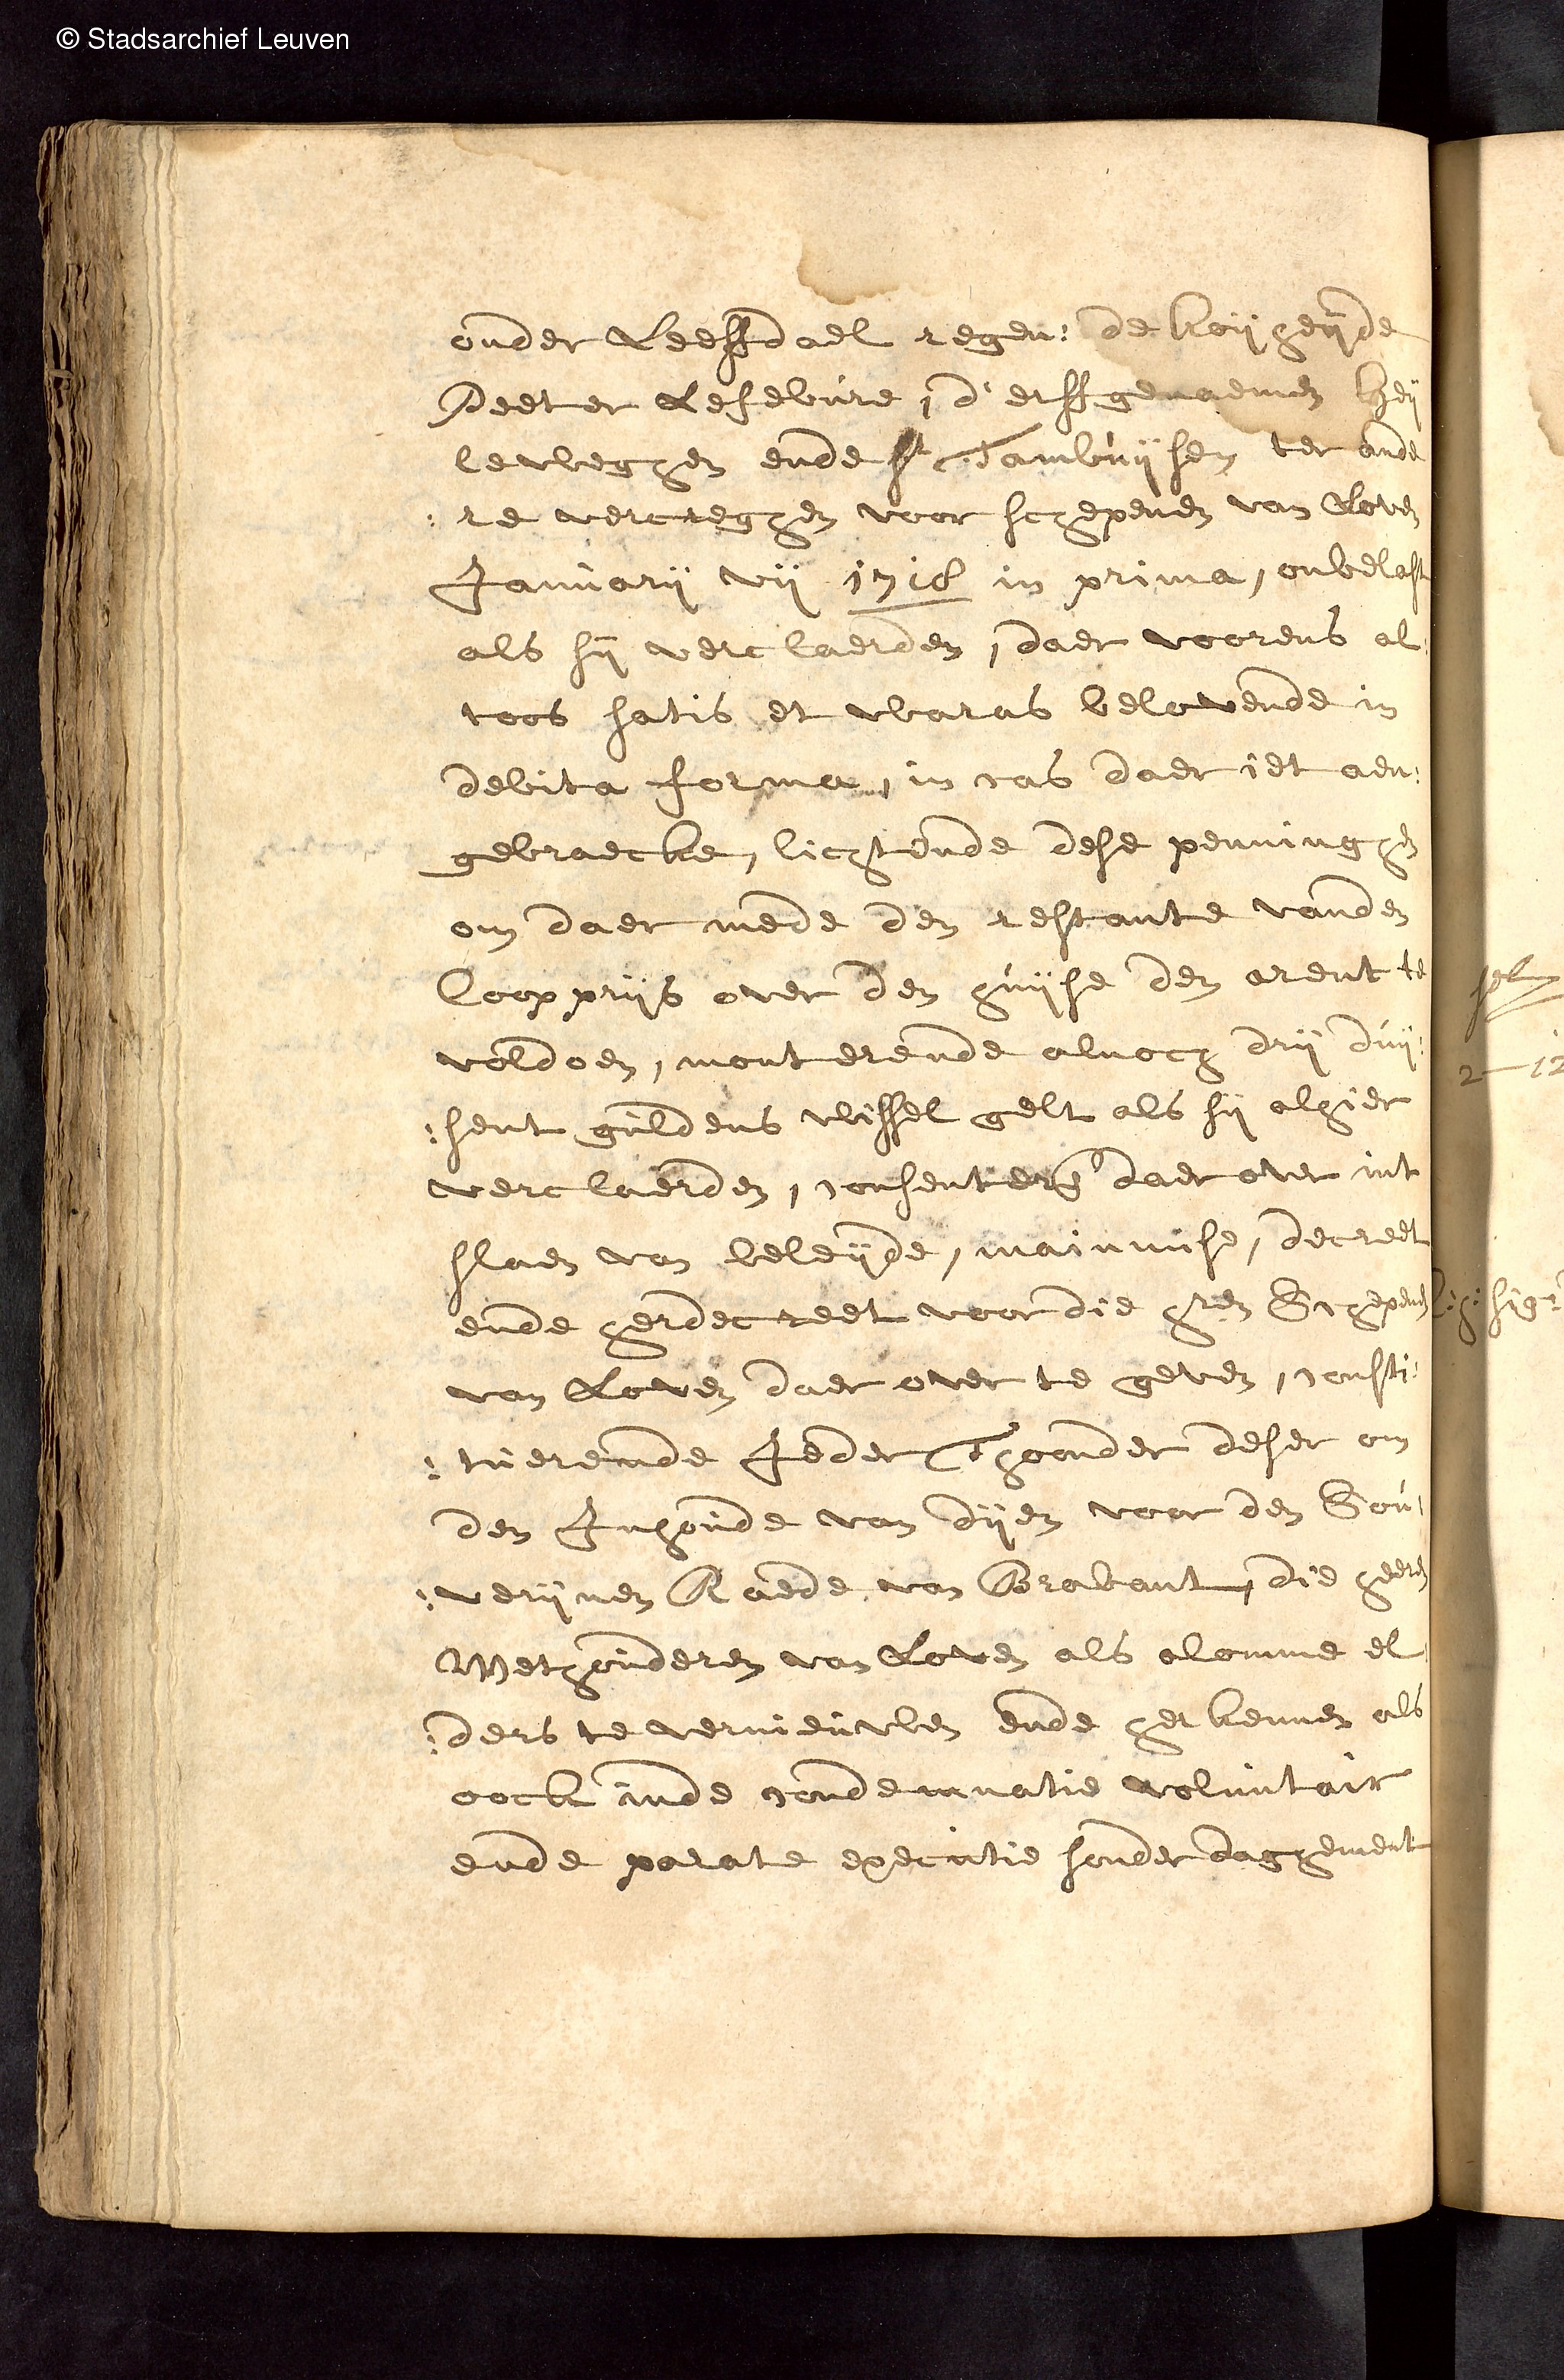 © Stadsarchief Leuven
onder Leeffdael regen: de koijheijde
Peeter Lefebure, d'erffgenaemen
ende st Tambuijsen ter ande
:re vercregghen voor schepenen van Loven
Januarij vij 1718 in prima, onbelast
als sij verclaerden, daer voorens al:
toos satis et waras belovende in
debita forma, in cas daer iet aen:
gebraecke, lichtende dese penninghen
om daer mede den restante vanden
coopprijs over den huijse den arent te
voldoen, monterende alnoch drij duij:
:sent guldens wissel gelt als sij alhier
verclaerden, consenterende daer over int
slaen van beleijde, mainmise, decreet
ende herdecreet voor die heren Schepenen
van Loven daer over te geven, consti:
:tuerende Jeder Thoonder deser om
den Inhoude van dijen voor den Sou:
:verijnen Raede van Brabant, die heeren
Wethouderen van Loven als alomme el:
:ders te vernieuwen ende herkennen als
oock inde condemnatie voluntair
ende parate executie sonder daghement
2 - 12